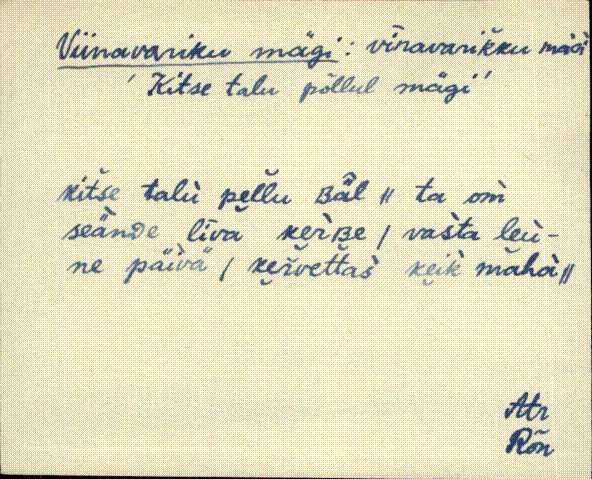 Viinavariku mägi: vīnavarikku mägi
'Kitse talu põllul mägi'
kitše talù pellu BÄl // ta om̀
seänDe līvä kèrBe / vašta leù-
ne päìvä / kervettas̀ keik̀ mähä //
Atr
Rõn